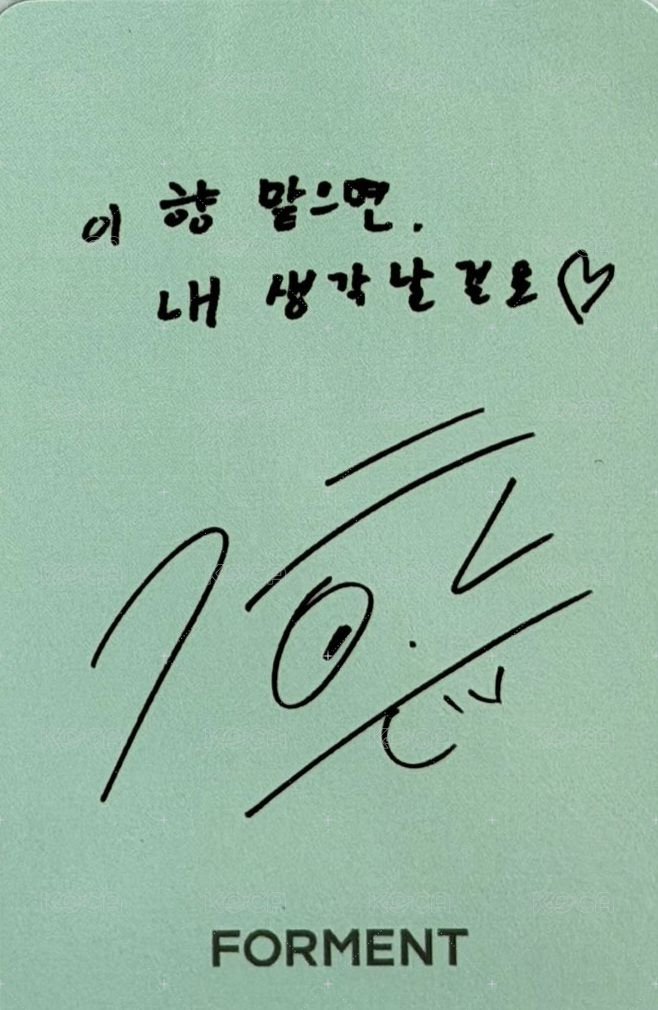 이 향 맡으면.
내 생각날걸요♡
FORMENT